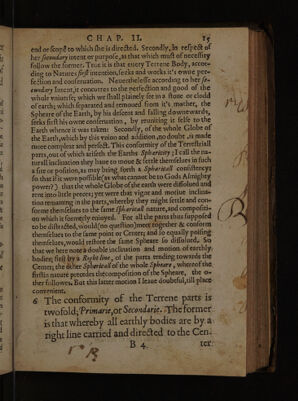 CHAP. II. 15
end or scope to which she is directed. Secondly, in respect of
her secondary intent or purpose, as that which must of necessity
follow the former. True it is that every Terrene Body, accor-
ding to Natures first intention, seeks and works it's owne per-
fection and conservation. Neverthelesse according to her se-
condary Intent, it concurres to the perfection and good of the
whole vniverse; which we shall plainely see in a stone or clodd
of earth; which separated and removed from it's mother, the
Spheare of the Earth, by his descent and falling downewards,
seeks first his owne conservation, by reuniting it selfe to the
Earth whence it was taken: Secondly, of the whole Globe of
the Earth, which by this vnion and addition, no doubt, is made
more compleat and perfect. This conformity of the Terrestriall
parts, out of which ariseth the Earths Sphericity; I call the na-
turall inclination they haue to moue & settle themselues in such
a site or position, as may bring forth a Sphericall consistency:
so that if it were possible (as what cannot be to Gods Almighty
power?) that the whole Globe of the earth were dissolued and
rent into little peeces; yet were that vigour and motiue inclina-
tion remaining in the parts, whereby they might settle and con-
forme themselues to the same sphericall nature, and compositi-
on which is formerly enioyed. For all the parts thus supposed
to be distracted, would (no question) meet together & conform
themselues to the same point or Center; and so equally poising
themselues, would restore the same Spheare so dissolued. So
that we here note a double inclination and motion of earthly
bodies; first by a Right line, of the parts tending towards the
Center; the other Sphericall of the whole Spheare, whereof the
first is nature precedes the composition of the Spheare, the o-
ther followes. But this latter motion I leaue doubtful, till place
convenient.
6 The conformity of the Terrene parts is
twofold; Primarie, or Secondarie. The former
is that whereby all earthly bodies are by a
right line carried and directed to the Cen-
B 4. ter.